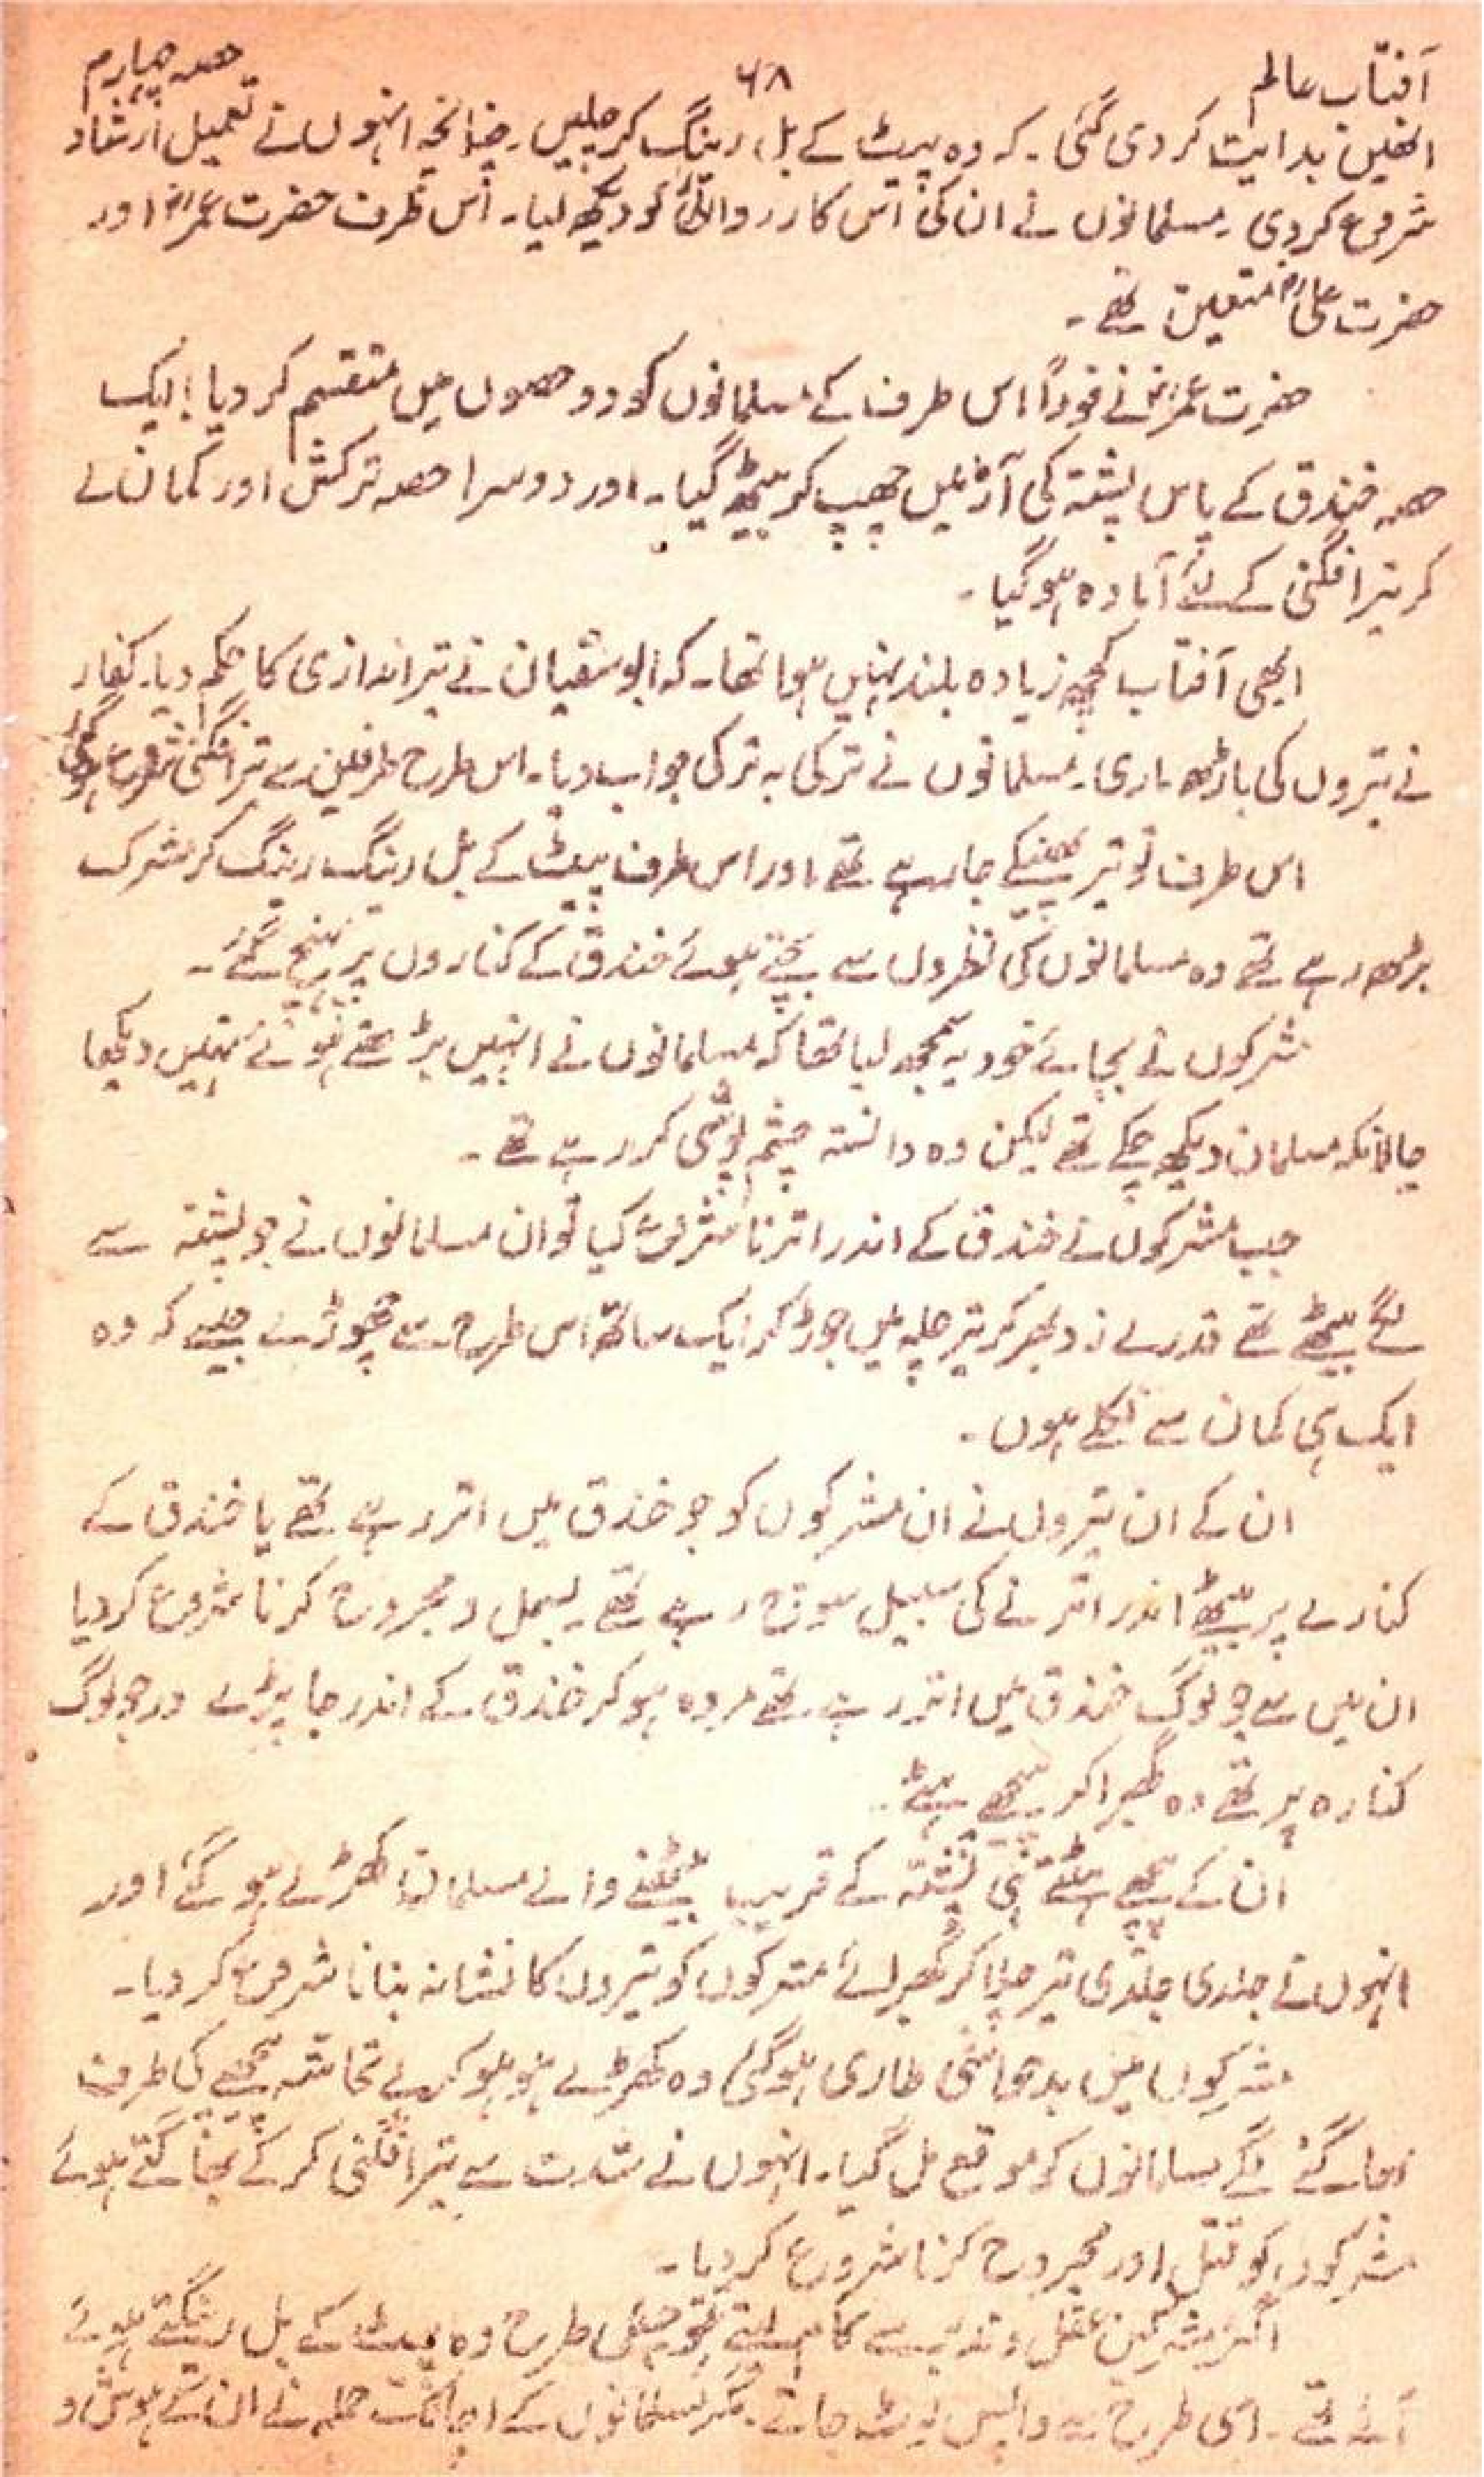 آفتاب عالم ۶۸ حصہ چہارم
انھیں ہدایت کر دی گئی ۔ کہ وہ پیٹ کے بل رینگ کر چلیں ۔ چنانچہ انہوں نے تعمیل ارشاد
شروع کر دی ۔ مسلمانوں نے ان کی اس کارروائی کو دیکھ لیا ۔ اس طرف حضرت عمرؓ اور
حضرت علیؓ متعین تھے ۔
حضرت عمرؓ نے فوراً اس طرف کے مسلمانوں کو دو حصوں میں منقسم کر دیا ؛ ایک
حصہ خندق کے پاس پشتہ کی آڑ میں چھپ کر بیٹھ گیا ۔ اور دوسرا حصہ ترکش اور کمان لے
کر تیر افگنی کے لئے آمادہ ہو گیا ۔
ابھی آفتاب کچھ زیادہ بلند نہیں ہوا تھا ۔ کہ ابو سفیان نے تیر اندازی کا حکم دیا ۔ کفار
نے تیروں کی باڑھ ماری ۔ مسلمانوں نے ترکی بہ ترکی جواب دیا ۔ اس طرح طرفین سے تیر افگنی شروع ہو گئی
اس طرف تو تیر پھینکے جا رہے تھے ، اور اس طرف پیٹ کے بل رینگ رینگ کر مشرک
بڑھ رہے تھے وہ مسلمانوں کی نظروں سے بچتے ہوئے خندق کے کناروں پر پہنچ گئے ۔
مشرکوں نے بجائے خود یہ سمجھ لیا تھا کہ مسلمانوں نے انہیں بڑھتے ہوئے نہیں دیکھا
حالانکہ مسلمان دیکھ چکے تھے لیکن وہ دانستہ چشم پوشی کر رہے تھے ۔
جب مشرکوں نے خندق کے اندر اترنا شروع کیا تو ان مسلمانوں نے جو پشتہ سے
لگے بیٹھے تھے قدرے زد بھر کر تیر چلہ میں جوڑ کر ایک ساتھ اس طرح سے چھوڑے جیسے کہ وہ
ایک ہی کمان سے نکلے ہوں ۔
ان کے ان تیروں نے ان مشرکوں کو جو خندق میں اتر رہے تھے یا خندق کے
کنارے پر بیٹھے اندر اترنے کی سبیل سوچ رہے تھے ۔ بسمل و مجروح کرنا شروع کر دیا
ان میں سے جو لوگ خندق میں اتر رہے تھے مردہ ہو کر خندق کے اندر جا پڑے اور جو لوگ
کنارہ پر تھے وہ گھبرا کر پیچھے ہٹے ۔
ان کے پیچھے ہٹتے ہی پشتہ کے قریب بیٹھنے والے مسلمان کھڑے ہو گئے اور
انہوں نے جلدی جلدی تیر چلا کر گھبرائے مشرکوں کو تیروں کا نشانہ بنانا شروع کر دیا ۔
مشرکوں میں بدحواسی طاری ہو گئی وہ کھڑے ہو ہو کر بے تحاشہ پیچھے کی طرف
بھاگنے لگے مسلمانوں کو موقع مل گیا ۔ انہوں نے شدت سے تیر افگنی کر کے بھاگتے ہوئے
مشرکوں کو قتل اور مجروح کرنا شروع کر دیا ۔
اگر مشرکین عقل و تدبر سے کام لیتے تو جس طرح وہ پیٹ کے بل رینگتے ہوئے
آئے تھے ۔ اسی طرح سے واپس لوٹ جاتے ۔ مگر مسلمانوں کے اچانک حملہ نے ان کے ہوش و